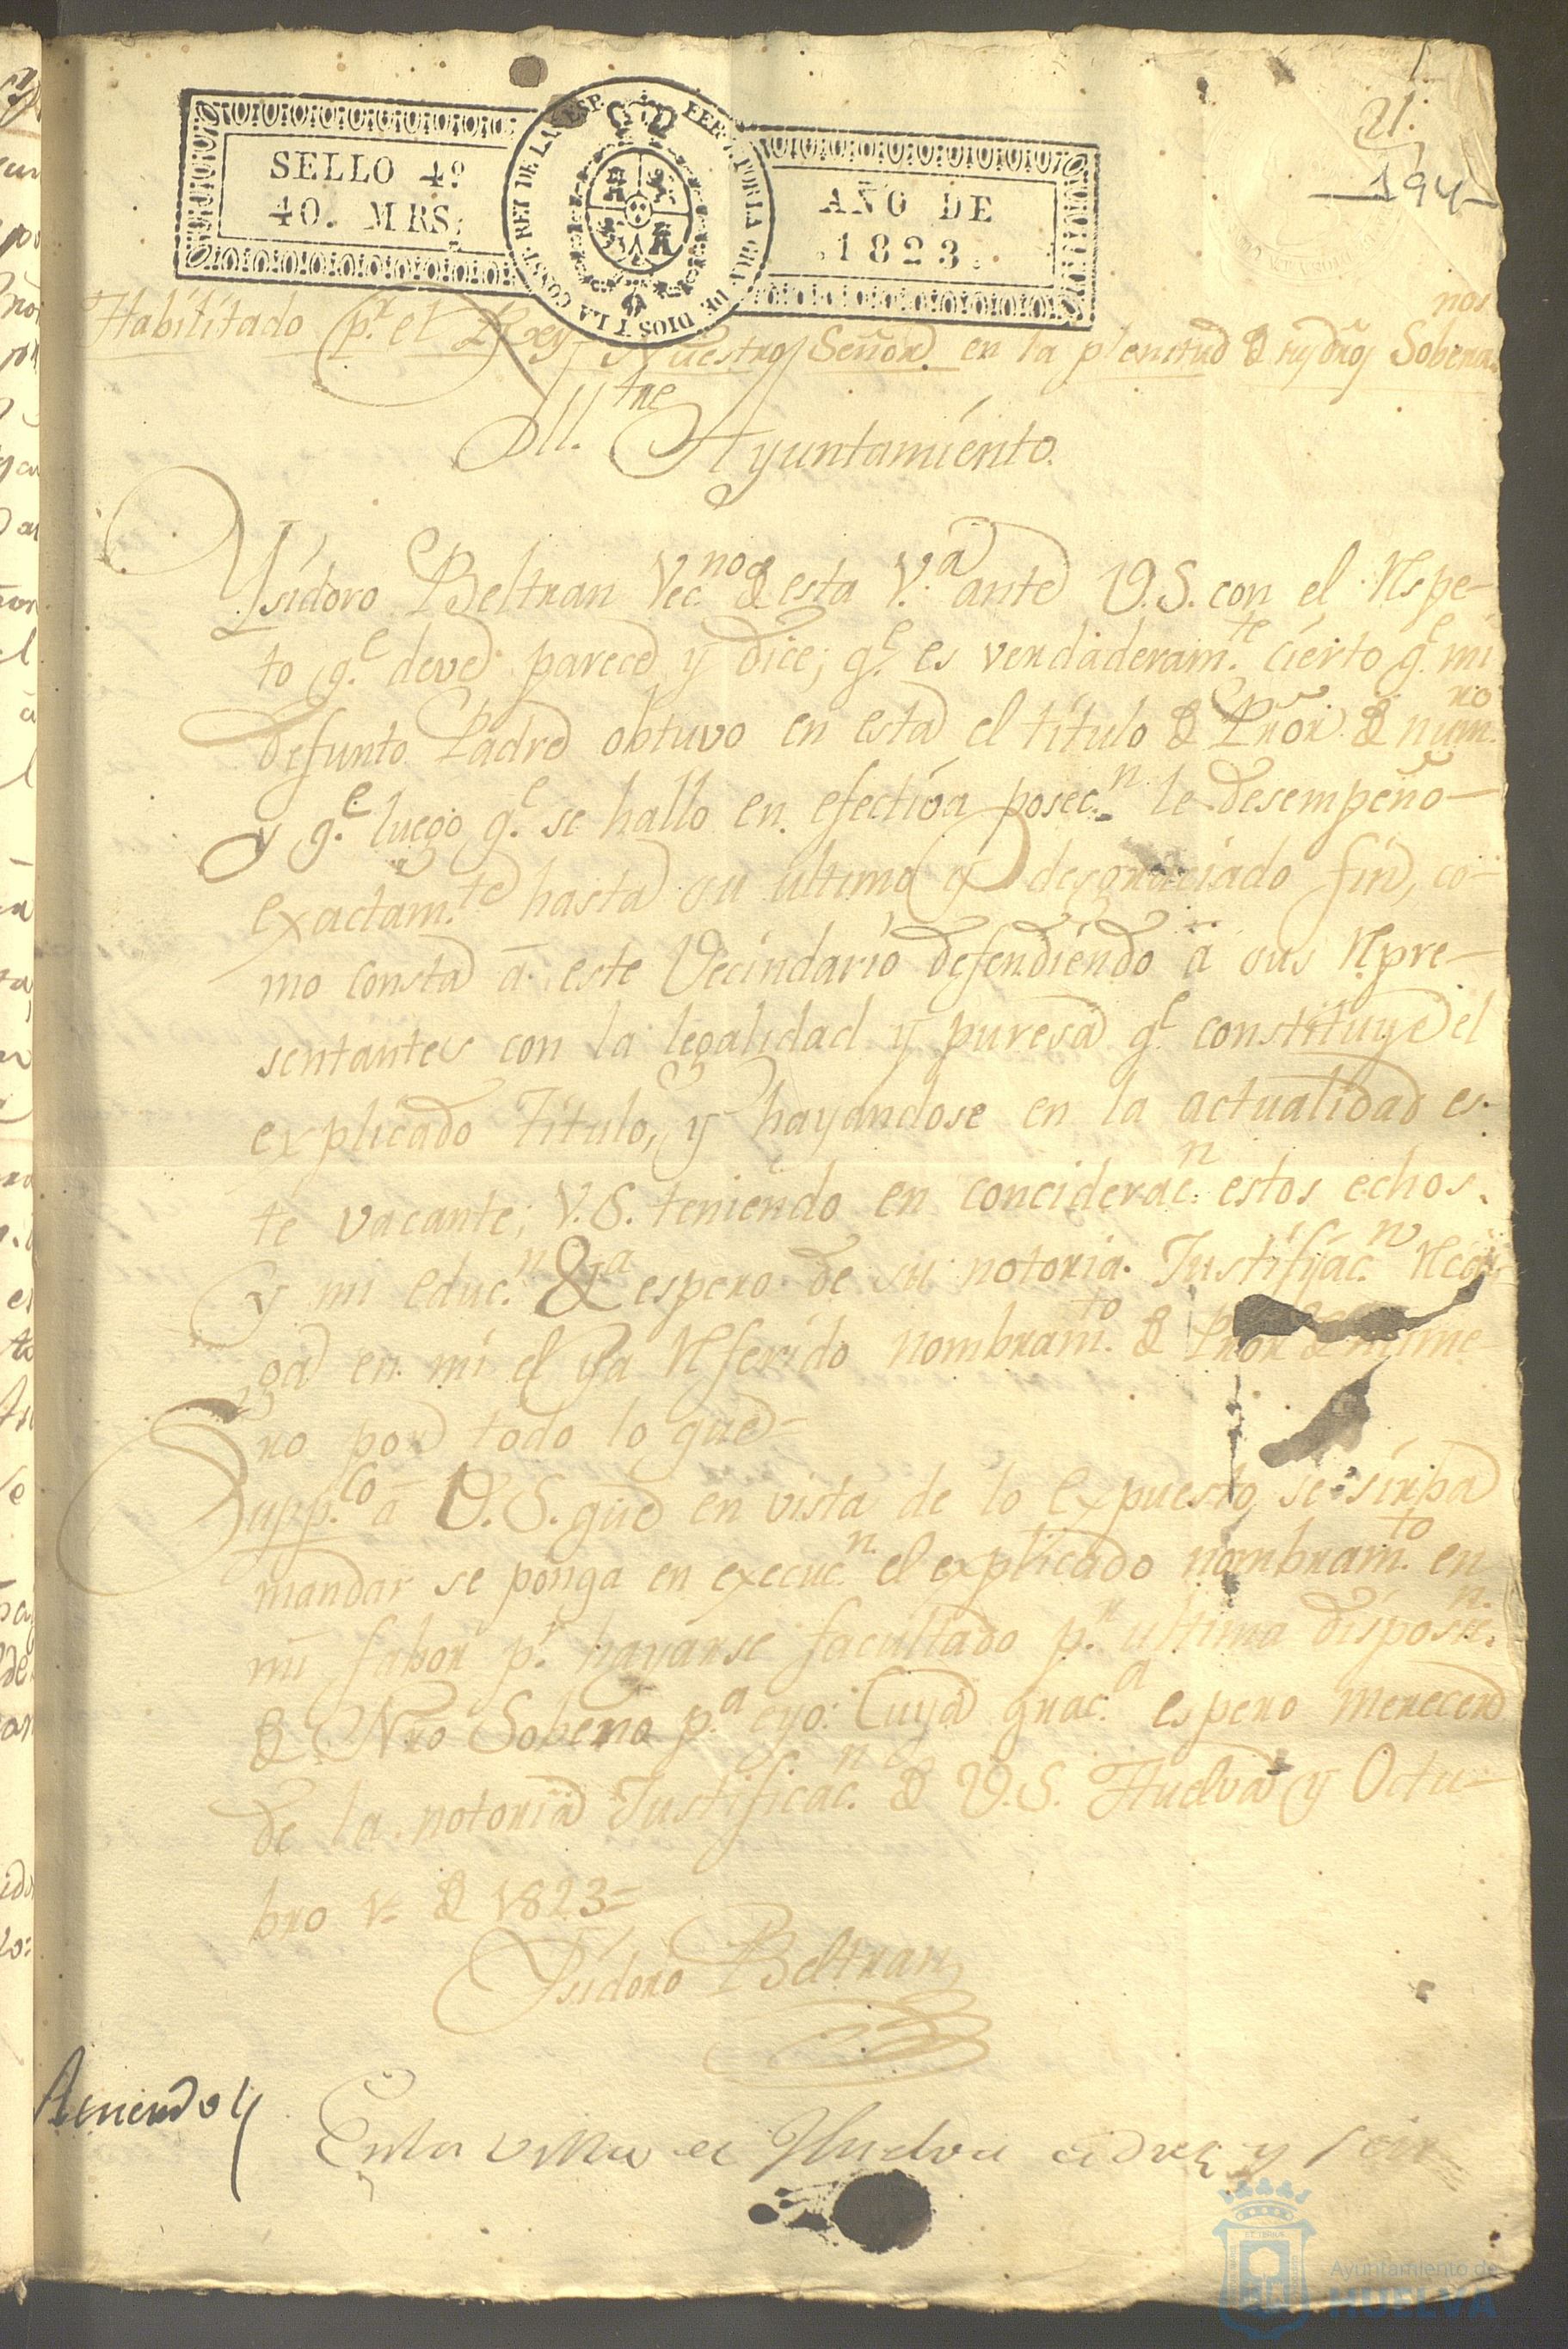 21.
194
SELLO 4º
40. MRS.
FER. 7º POR LA GRA. DE DIOS Y LA CONST. REY DE LAS ESP.
AÑO DE
1823.
Habilitado pr. el Rey Nuestro Señor en la plenitud & sus dros Soberanos
Ill.tre Ayuntamiento.
Ysidoro Beltran Vec.no & esta V.a ante V.S. con el Rspe-
to q.e deve parece y dice; q.e es verdaderam.te cierto q.e mi
defunto Padre obtuvo en esta el titulo & Prõr. & num.no
y q.e luego q.e se hallo en efectiva posec.n le desempeño
exactam.te hasta su ultimo y desgraciado fin, co-
mo consta â este Vecindario defendiendo â sus Rpre-
sentantes con la legalidad y puresa q.e constituye el
explicado Titulo, y hayandose en la actualidad es-
te vacante; V.S. teniendo en conciderac.n estos echos
y mi educ.n &a espero de su notoria Justifijac.n
ga en mi el ya Rferido nombram.to & Pror & nume-
ro por todo lo que-
Supp.co â V.S. que en vista de lo expuesto se sirba
mandar se ponga en execuc.n el explicado nombram.to en
mi fabor p.r hayarse facultado p.r ultima disposic.n
& Nro Sobeno p.a eyo: Cuya grac.a espero merecer
de la notoria Justificac.n & V.S. Huelva y Octu-
bre 1º & 1823=
Ysidoro Beltran
Acuerdo
En la Villa de Huelva a dies y seis
Ayuntamiento de
HUELVA